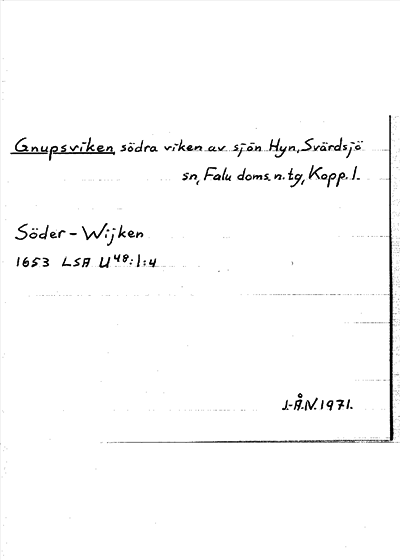 Gnupsviken, södra viken av sjön Hyn, Svärdsjö
sn, Falu doms. n. tg, Kopp. l.
Söder-Wijken
1653 LSA U48:1:4
J.-Å.N. 1971.